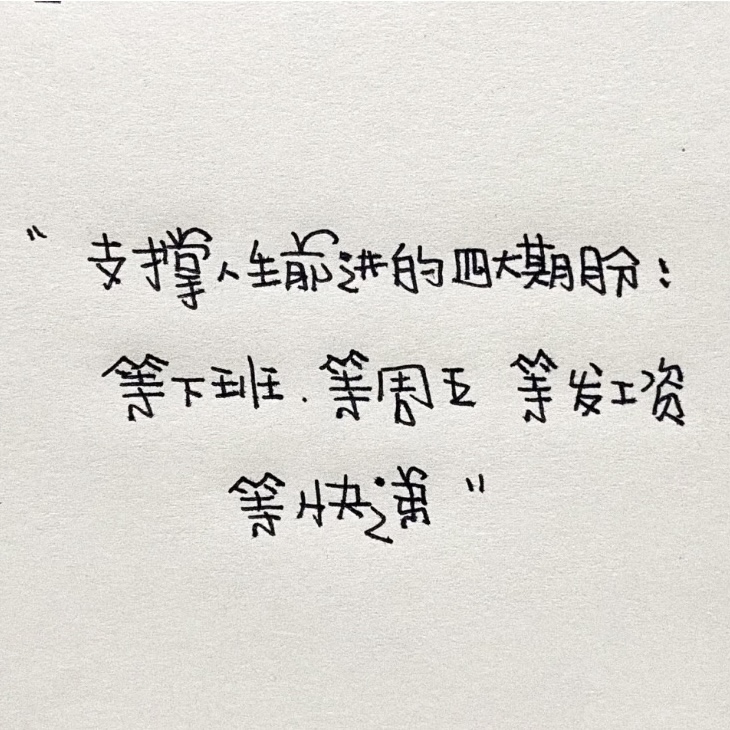 "支撑人生前进的四大期盼:
等下班.等周五 等发工资
等快递"